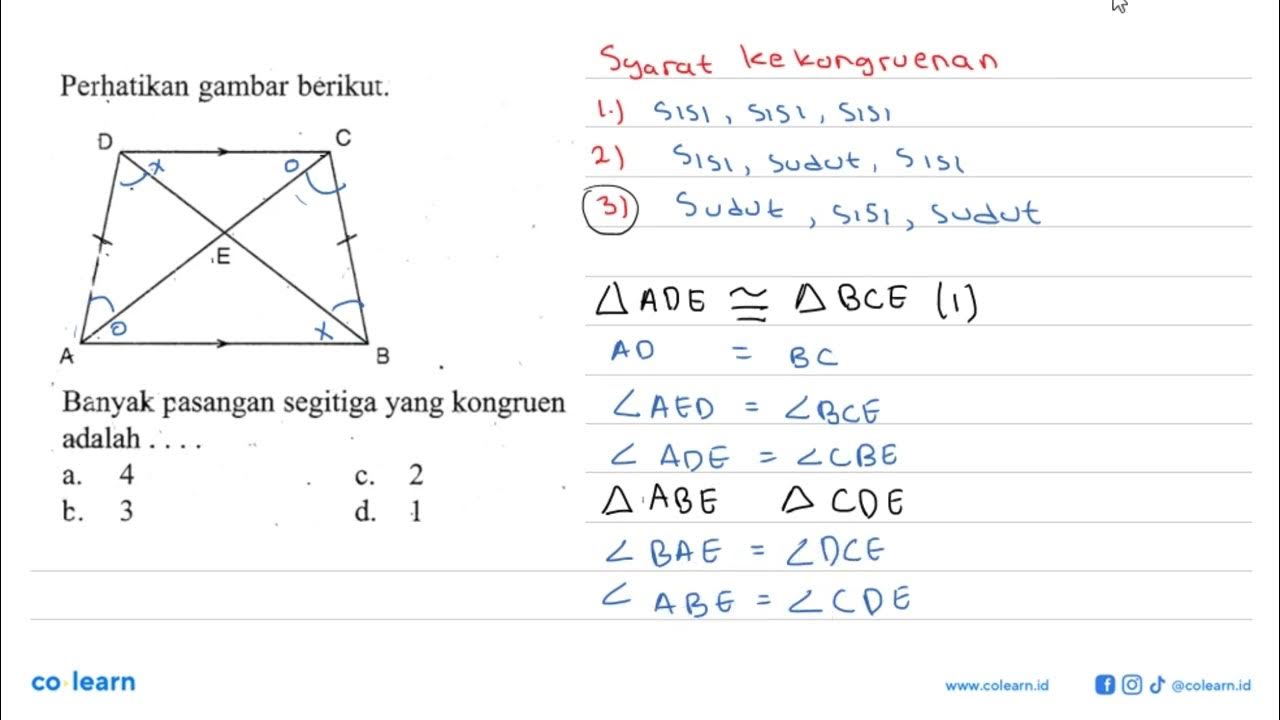 Perhatikan gambar berikut.
D
C
x
o
E
o
x
A
B
Banyak pasangan segitiga yang kongruen
adalah . . . .
a. 4
c. 2
b. 3
d. 1
Syarat kekongruenan
1.) sisi, sisi, sisi
2) sisi, sudut, sisi
3) sudut, sisi, sudut
△ ADE ≅ △ BCE (1)
AD = BC
∠AED = ∠BCE
∠ ADE = ∠CBE
△ ABE △ CDE
∠ BAE = ∠DCE
∠ ABE = ∠CDE
co learn
www.colearn.id
@colearn.id